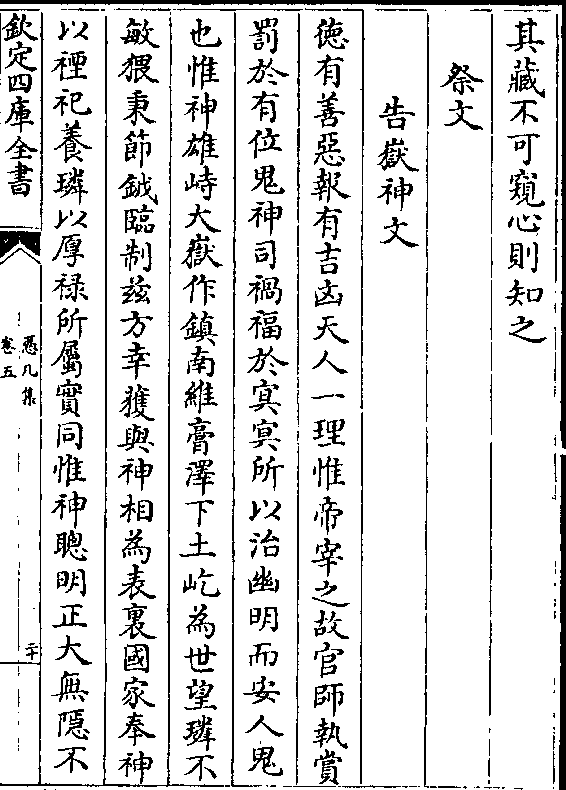 其藏不可窺心則知之
祭文
告嶽神文
徳有善惡報有吉凶天人一理惟帝宰之故官師執賞
罰於有位鬼神司禍福於冥冥所以治幽明而安人鬼
也惟神雄峙大嶽作鎮南維膏澤下土屹為世望璘不
敏猥秉節鉞臨制兹方幸獲與神相為表裏國家奉神
以禋祀養璘以厚禄所屬實同惟神聰明正大無隠不
欽定四庫全書
憑几集
卷五
二十